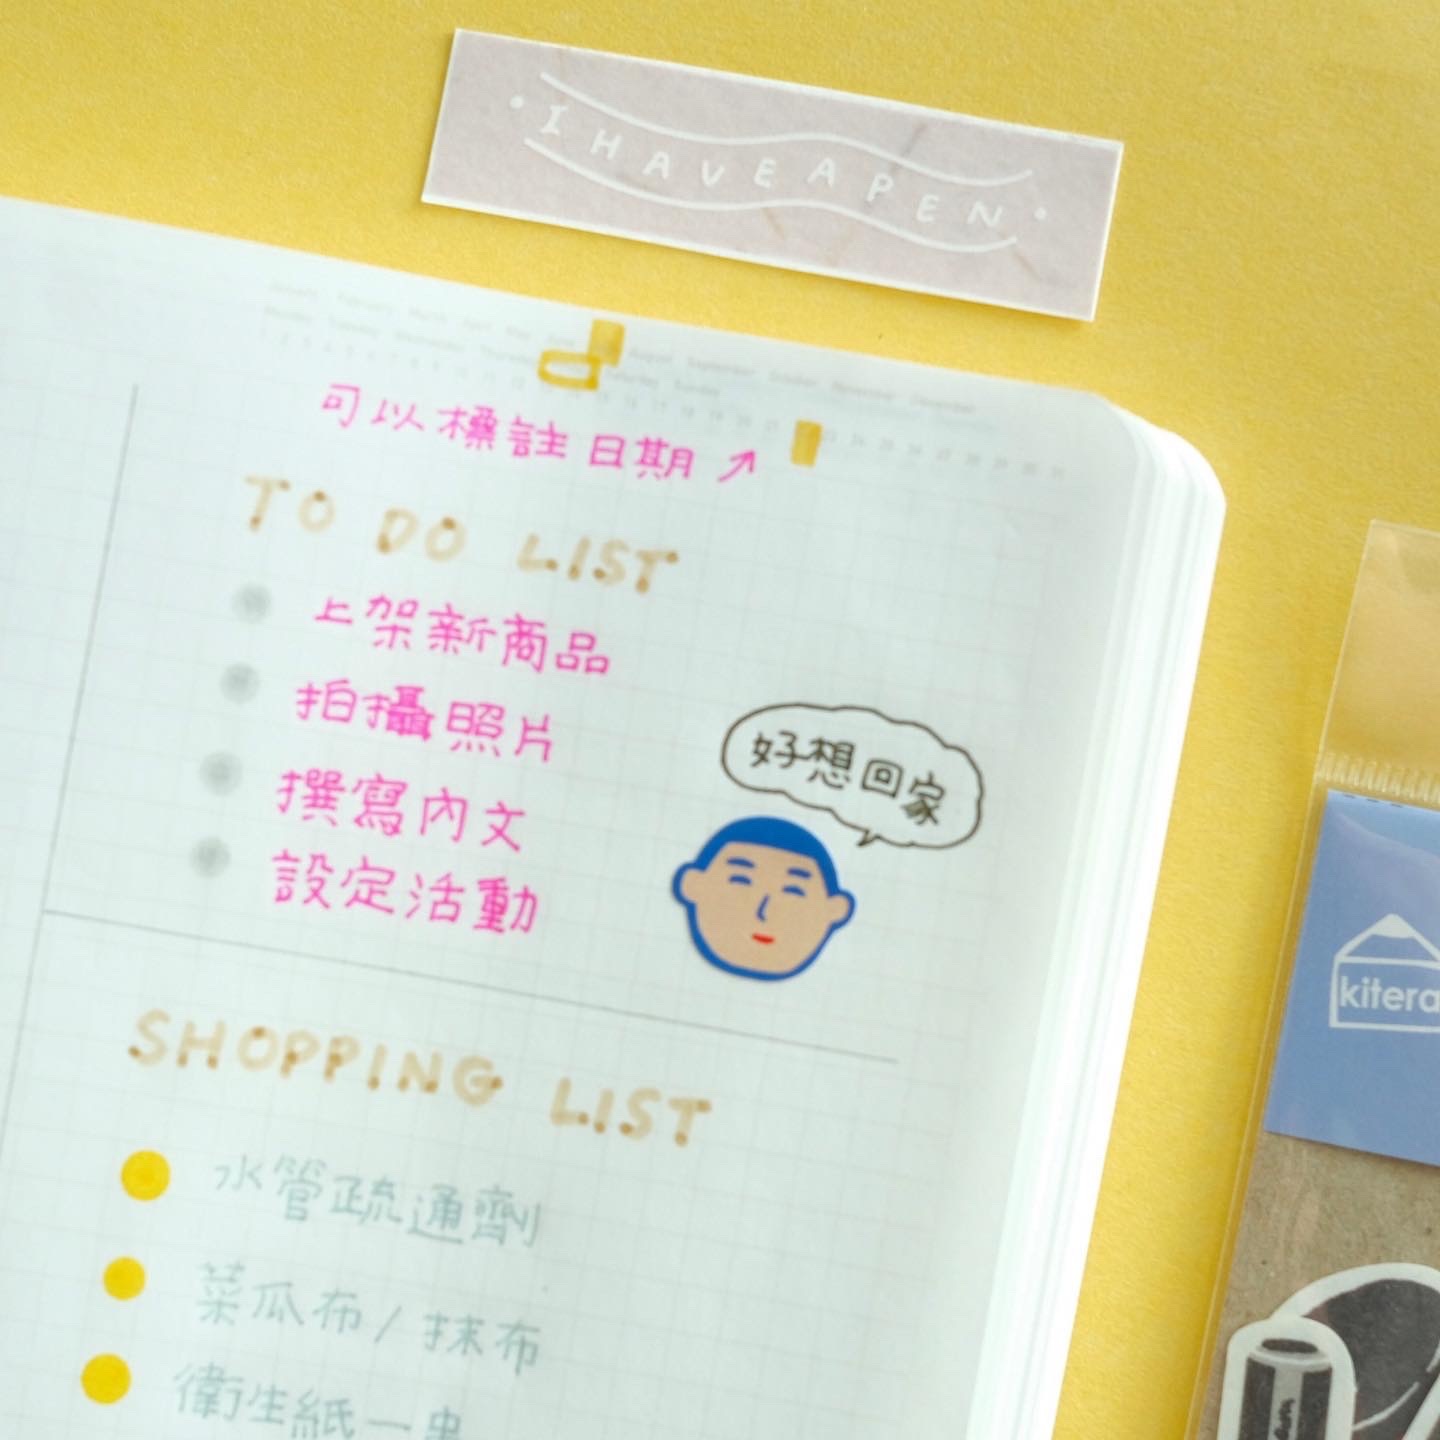 • I HAVE A PEN •
可以標註日期↗
TO DO LIST
上架新商品
拍攝照片
撰寫內文
設定活動
好想回家
kitera
SHOPPING LIST
水管疏通劑
菜瓜布/抹布
衛生紙一串